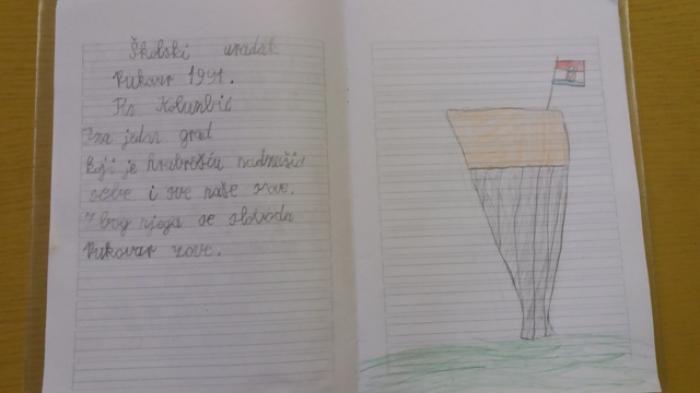 Školski uradak
Vukovar 1991.
Pero Kolumbić
Zna jedan grad
koji je hrabrošću nadmašio
sebe i sve naše snove.
Zbog njega se sloboda
Vukovar zove.